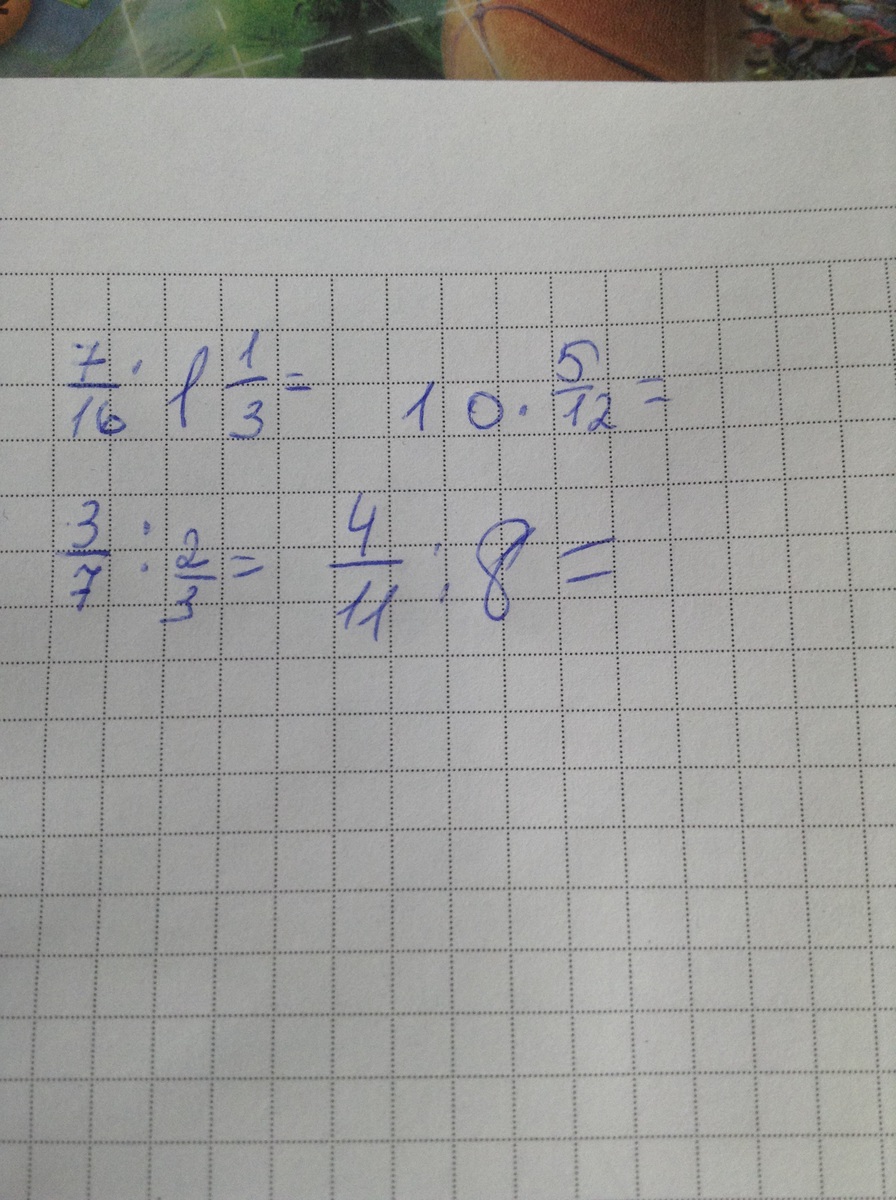 7/16 · 1 1/3 = 10 · 5/12 =
3/7 : 2/3 = 4/11 : 8 =